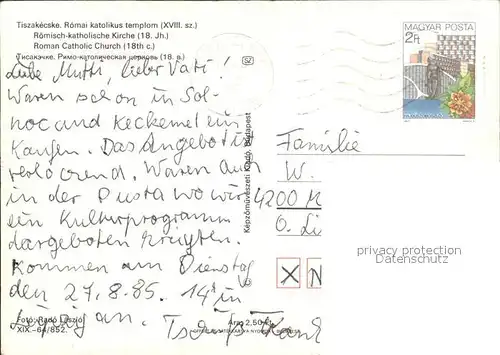 Tiszakécske. Római katolikus templom (XVIII. sz.)
Römisch-katholische Kirche (18. Jh.)
Roman Catholic Church (18th c.)
Тисакечке. Римо-католическая церковь (18. в.)
MAGYAR POSTA
2Ft
Liebe Mutti, lieber Vati!
Waren schon in Sol-
noc and Keckemel zum
Kaufen. Das Angebot ist
verlockend. Waren auch
in der Pusta wo wir
ein Kulturprogramm
dargeboten kriegten.
Kommen am Dienstag
den 27.8.85. 14h in
Leipzig an.
Képzőművészeti Kiadó, Budapest
Familie
W.
4200 M
O. Li
privacy protection
Datenschutz
X N
Fotó: Radó László
XIX.-64/852.
Ára: 2,50 Ft